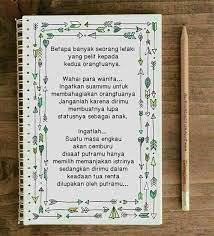 Betapa banyak seorang lelaki
yang pelit kepada
kedua orangtuanya.
Wahai para wanita...
Ingatkan suamimu untuk
membahagiakan orangtuanya
Janganlah karena dirimu
membuatnya lupa
statusnya sebagai anak.
Ingatlah...
Suatu masa engkau
akan cemburu
disaat putramu hanya
memilih memanjakan istrinya
sedangkan dirimu dalam
keadaan tua renta
dilupakan oleh putramu...